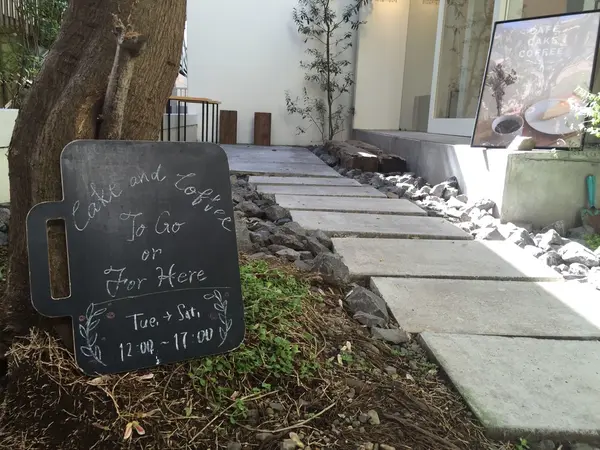 Cake and Coffee
To Go
or
For Here
Tue. → Sat.
12:00 ~ 17:00
CAFE
CAKE
COFFEE